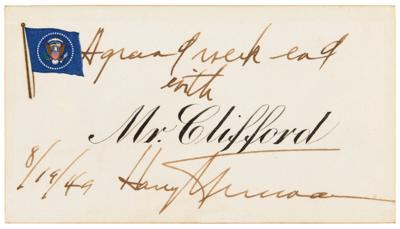 A grand week end
with
Mr. Clifford
8/19/49 Harry Truman